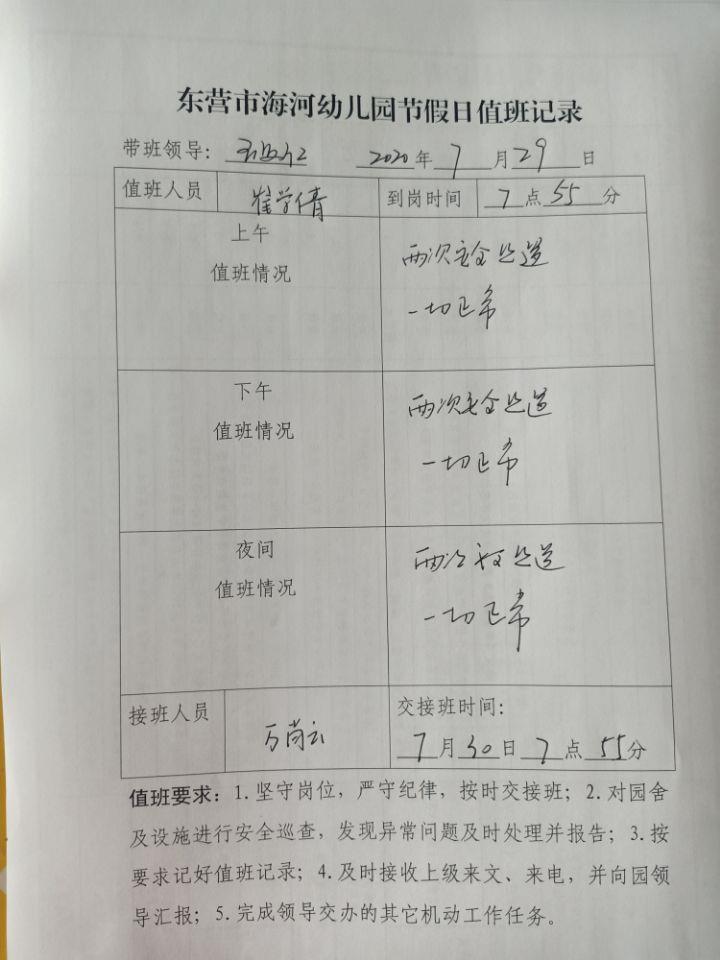 东营市海河幼儿园节假日值班记录
带班领导： 2020年7月29日
值班人员 崔学倩 到岗时间 7点55分
上午
值班情况
两次安全巡逻
一切正常
下午
值班情况
两次安全巡逻
一切正常
夜间
值班情况
两次 巡逻
一切正常
接班人员 万尚云
交接班时间：
7月30日7点55分
值班要求：1. 坚守岗位，严守纪律，按时交接班；2. 对园舍
及设施进行安全巡查，发现异常问题及时处理并报告；3. 按
要求记好值班记录；4. 及时接收上级来文、来电，并向园领
导汇报；5. 完成领导交办的其它机动工作任务。